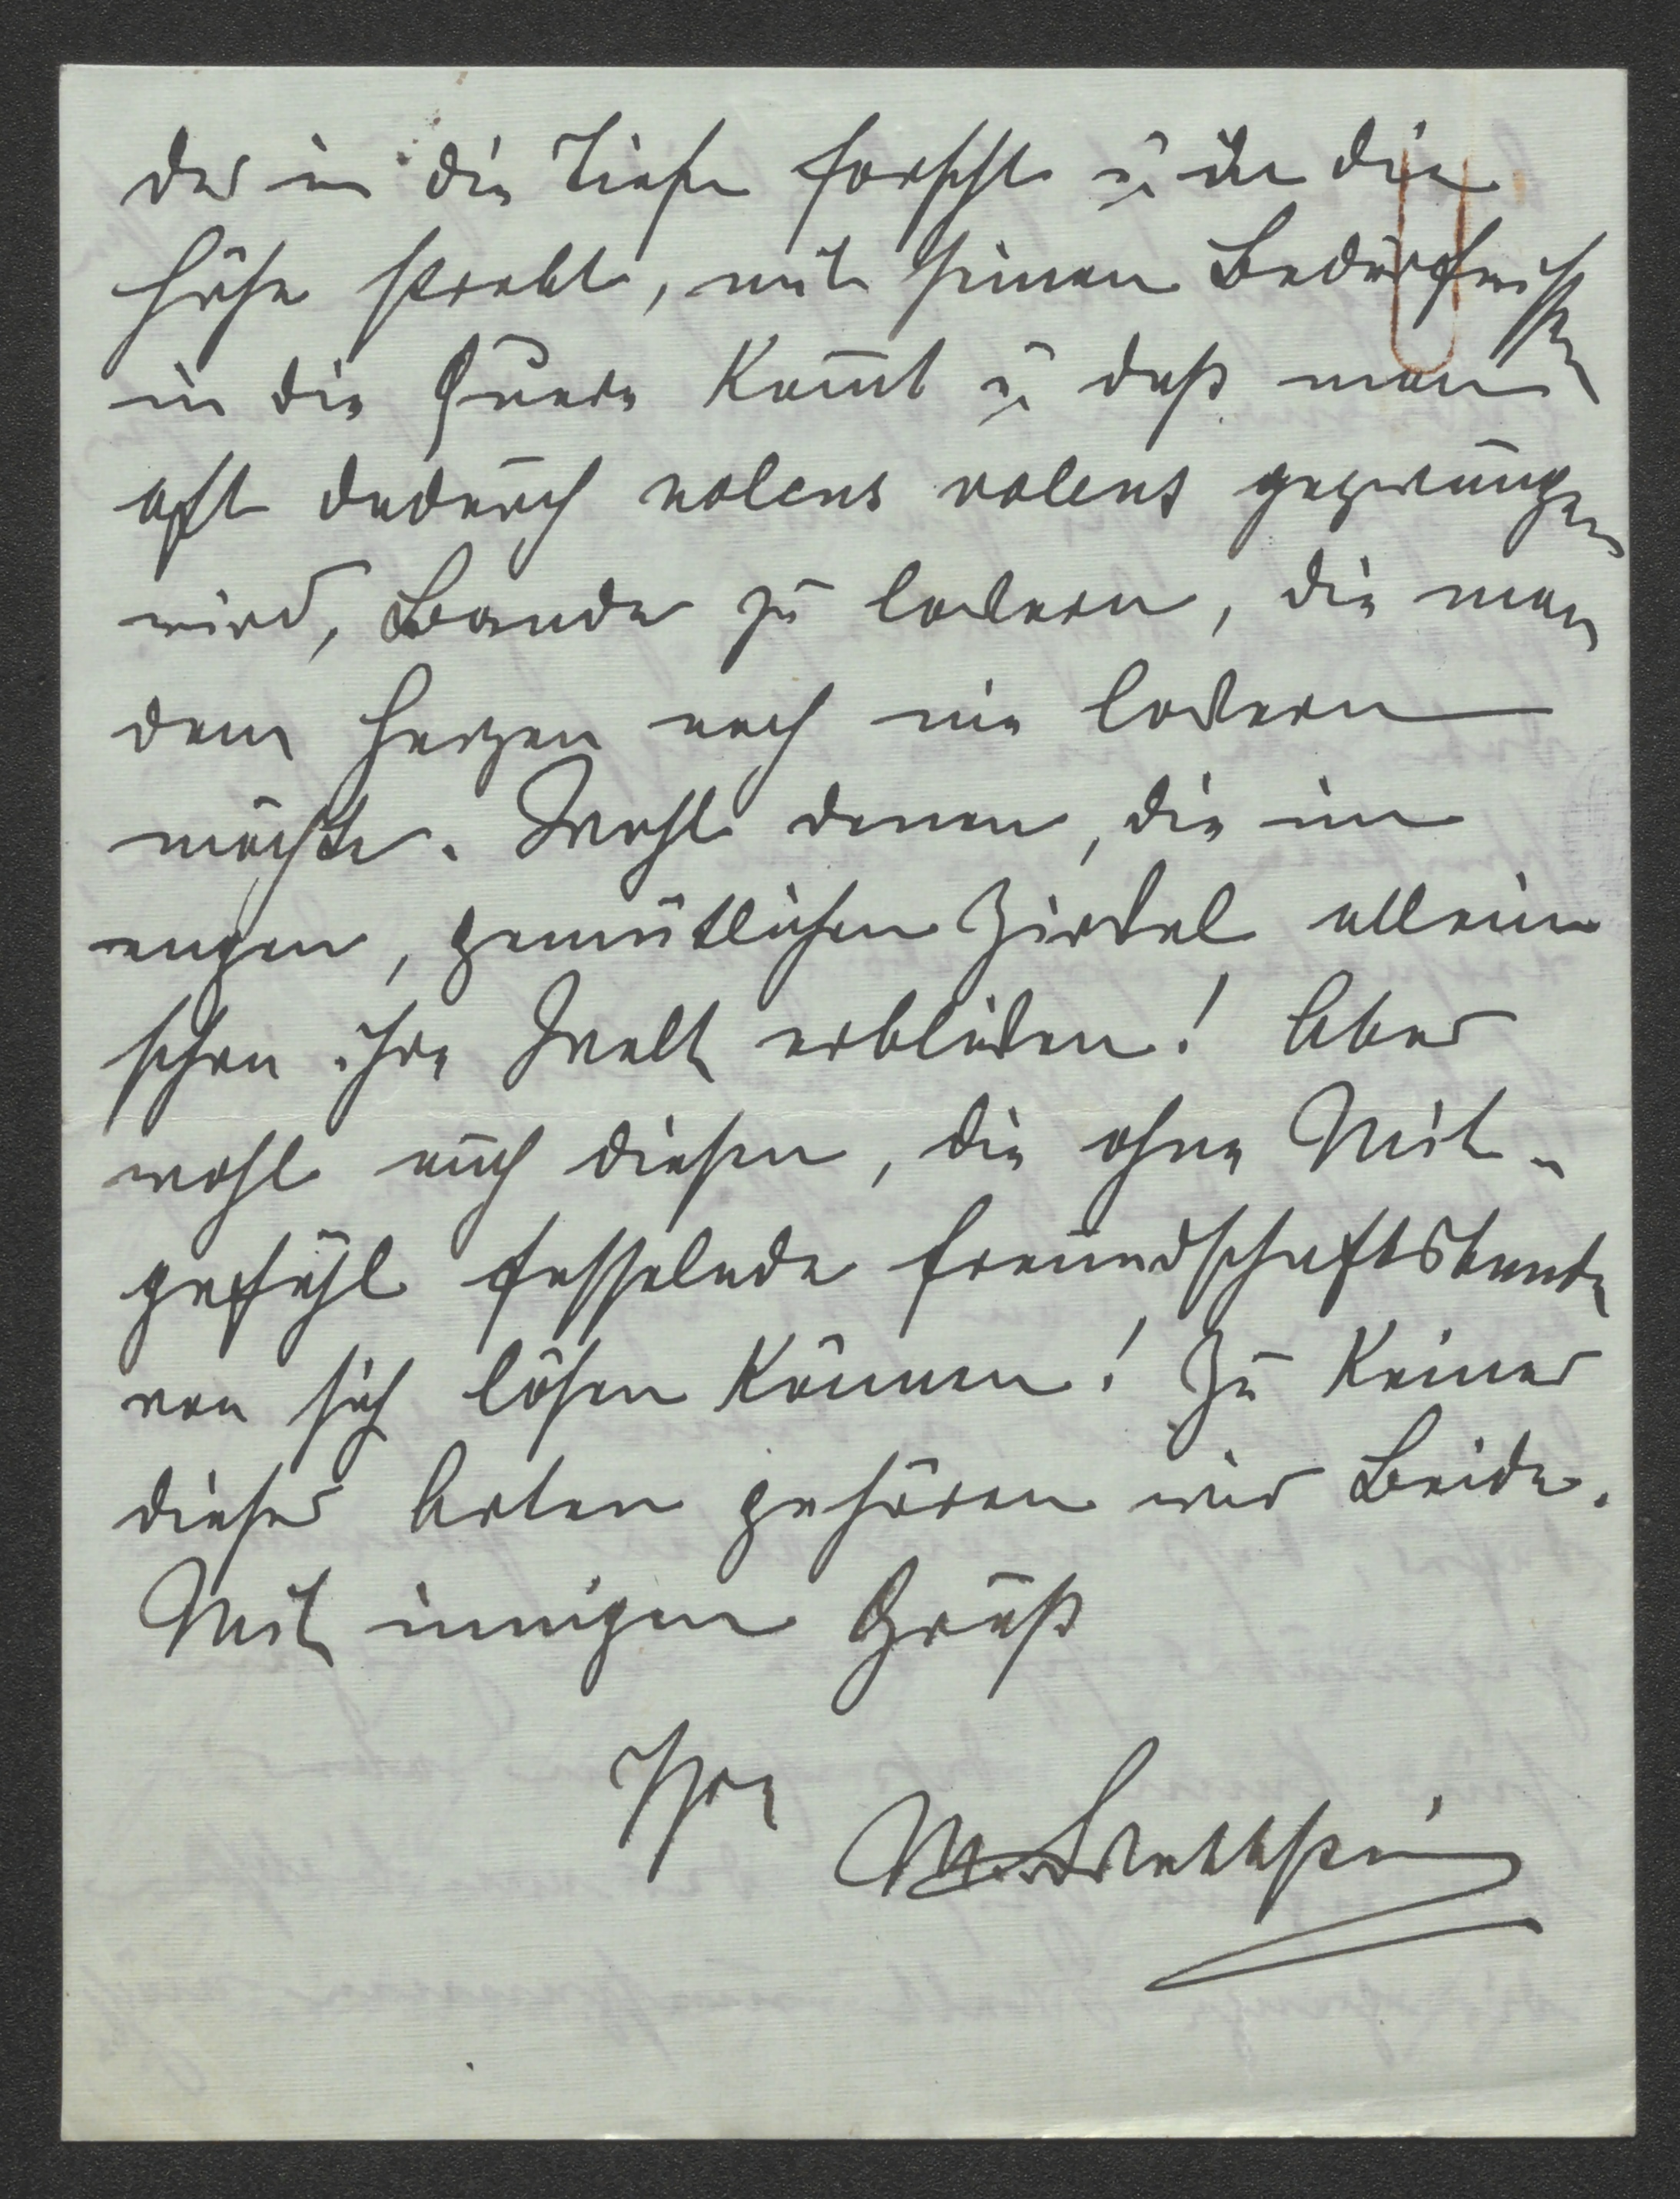 der in die Tiefe forscht u. in die
Höhe strebt, mit seinen Bedürfnissen
in die Quere kom̅t u. daß man
oft dadurch nolens volens gezwungen
wird, Bande zu lockern, die man
dem Herzen nach nie lockern
möchte. Wohl denen, die im
engen, gemütlichen Zirkel allein
schon ihre Welt erblicken! Aber
wohl auch diesen, die ohne Mit-
gefühl fesselnde Freundschaftsbande
von sich lösen können! Zu keiner
dieser Arten gehören wir Beide.
Mit innigem Gruß
Ihr
M. Wettstein